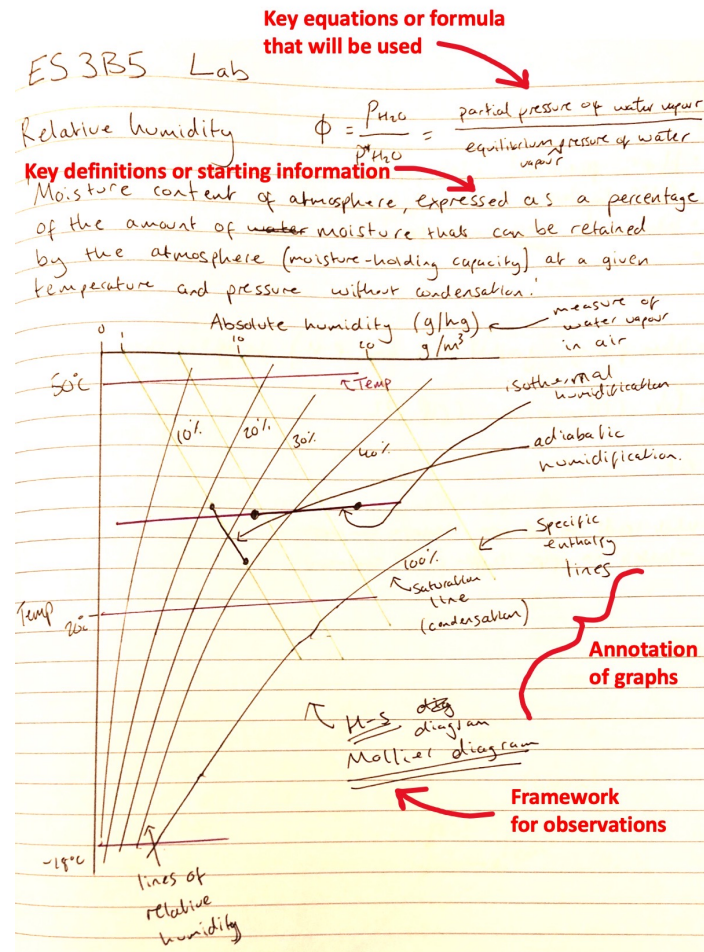 Key equations or formula
that will be used
ES3B5 Lab
Relative humidity
Φ = PH₂O / P*H₂O = partial pressure of water vapour / equilibrium pressure of water vapour
Key definitions or starting information
'Moisture content of atmosphere, expressed as a percentage
of the amount of water moisture thats can be retained
by the atmosphere (moisture-holding capacity) at a given
temperature and pressure without condensation.'
Absolute humidity (g/kg)
g/m³
measure of
water vapour
in air
0
1
10
20
50°C
Temp
isothermal
humidification
10%
20%
30%
40%
adiabatic
humidification.
Specific
enthalpy
lines
100%
saturation
line
(condensation)
Temp
20°C
Annotation
of graphs
H-S
diagram
Mollier diagram
Framework
for observations
-18°C
lines of
relative
humidity